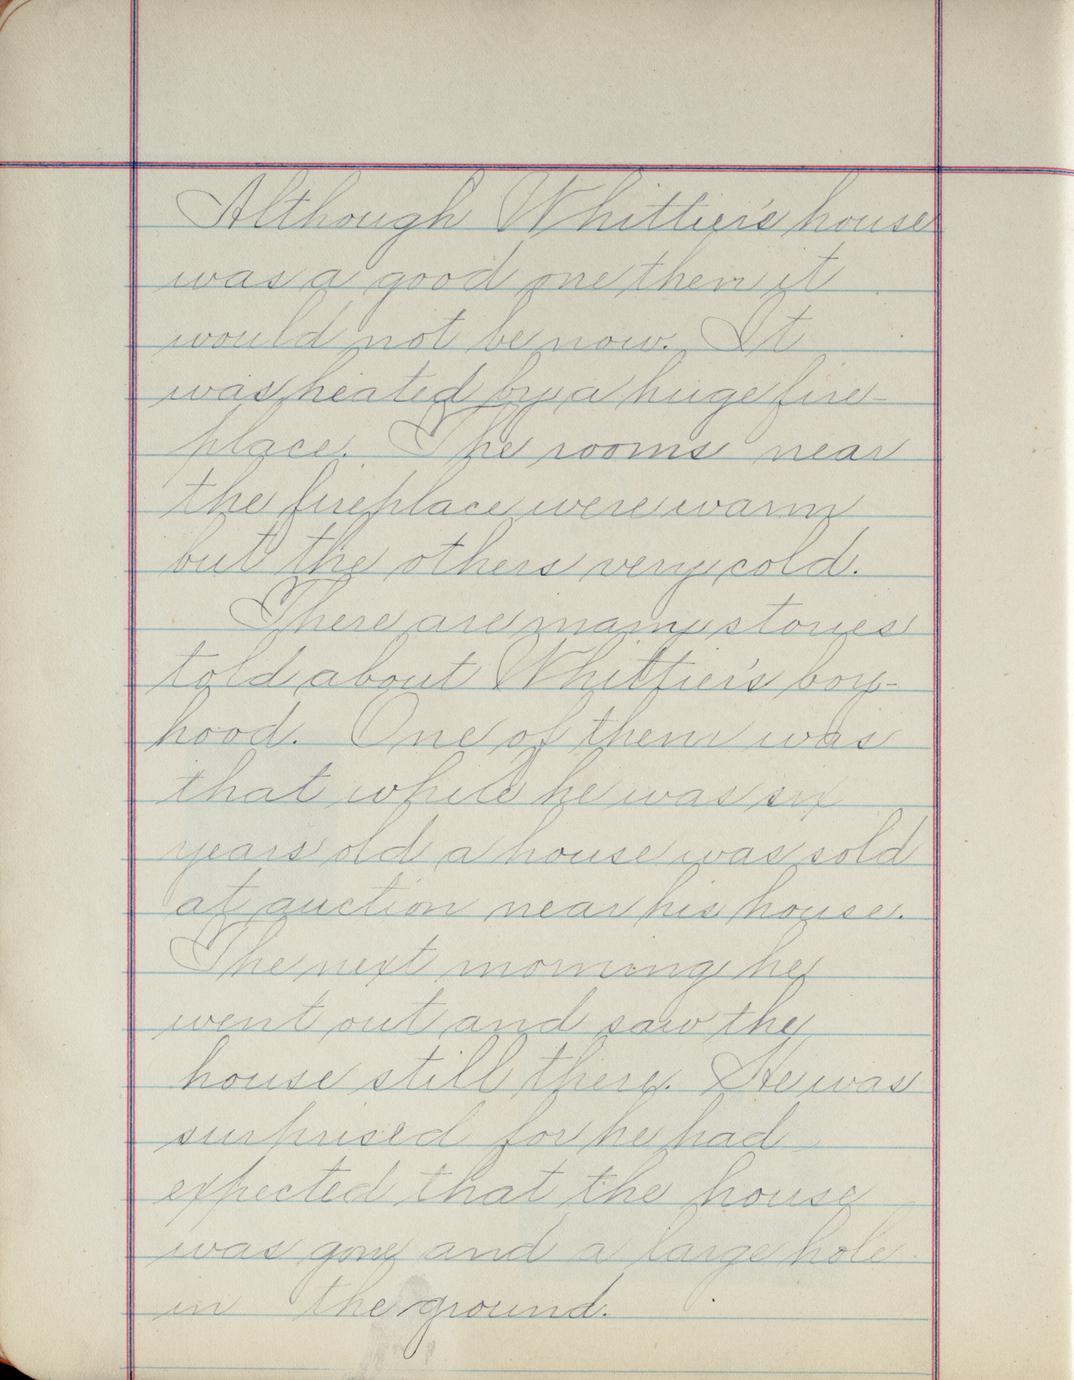 Although Whittier's house
was a good one then it
would not be now. It
was heated by a huge fire-
place. The rooms near
the fireplace were warm
but the others very cold.
There are many stories
told about Whittier's boy-
hood. One of them was
that while he was six
years old a house was sold
at auction near his house.
The next morning he
went out and saw the
house still there. He was
surprised for he had
expected that the house
was gone and a large hole
in the ground.